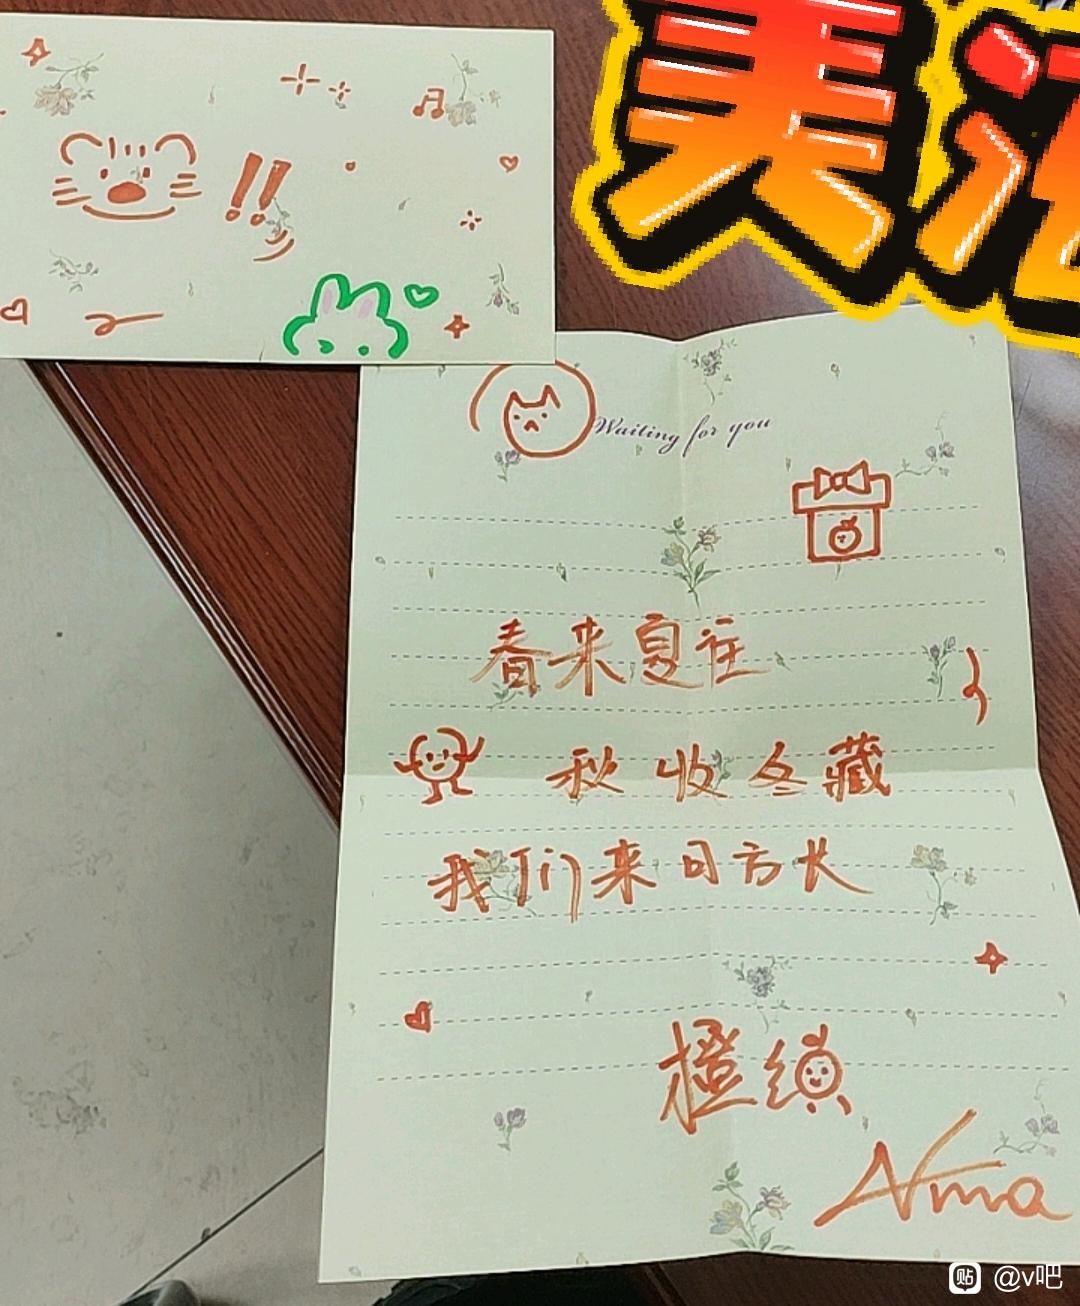 !!
Waiting for you
春来夏往
秋收冬藏
我们来日方长
橙缜
Nma
贴 @v吧